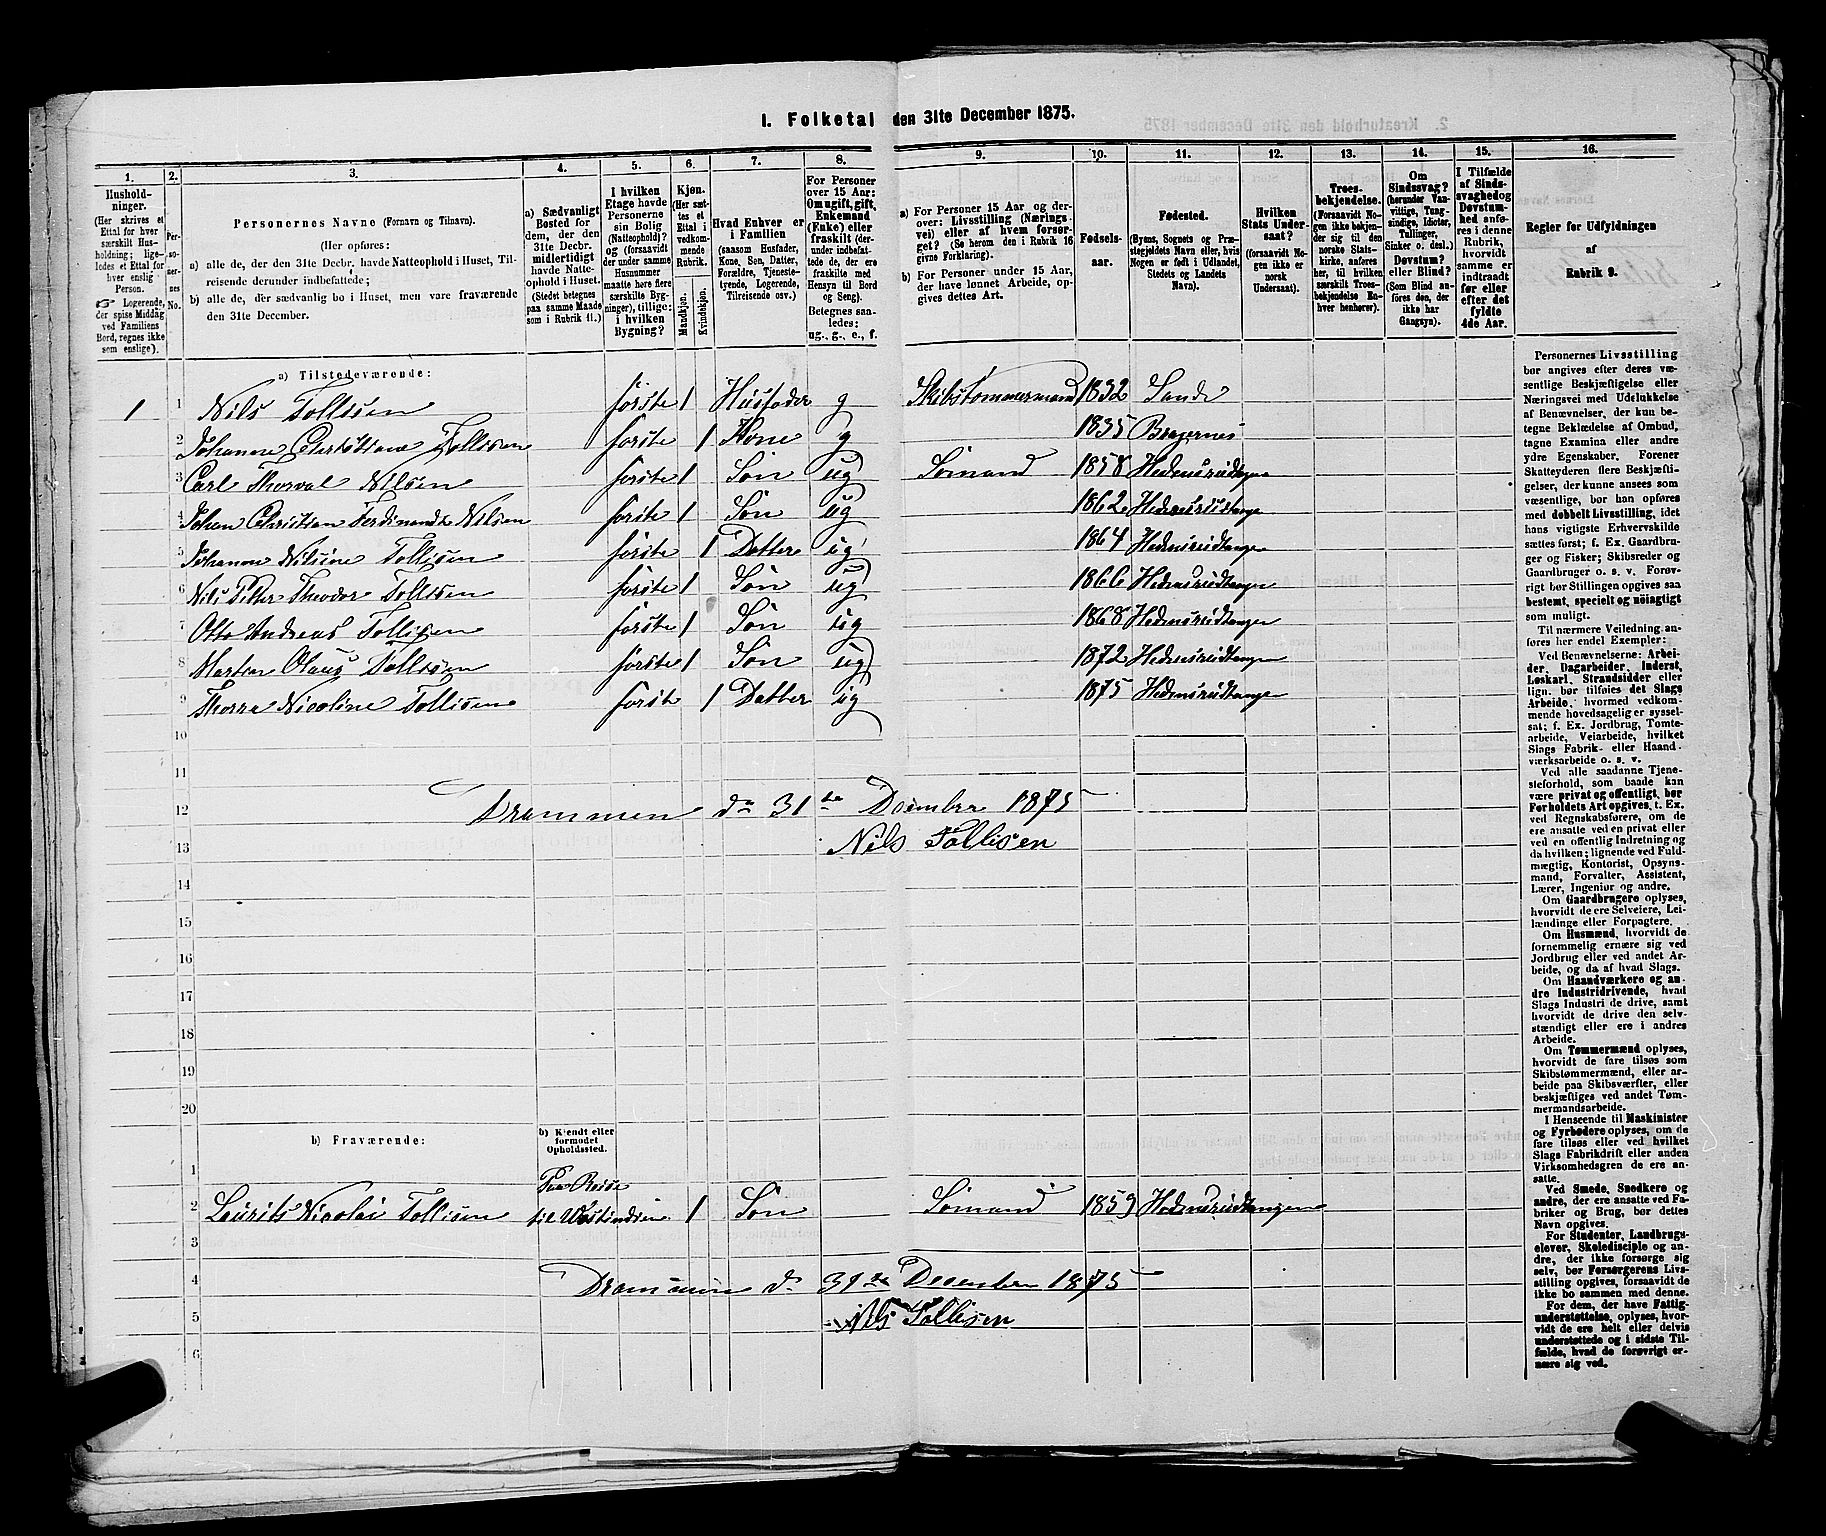 I. Folketal den 31te December 1875.
1.
Hushold-
ninger.
(Her skrives et
Ettal for hver
særskilt Hus-
holdning; lige-
ledes et Ettal for
enhver enslig
Person.
Logerende,
der spise Middag
ved Familiens
Bord, regnes ikke
som enslige).
2.
Per-
so-
ner-
nes
No.
3.
Personernes Navne (Fornavn og Tilnavn).
(Her opføres:
a) alle de, der den 31te Decbr. havde Natteophold i Huset, Til-
reisende derunder indbefattede;
b) alle de, der sædvanlig bo i Huset, men vare fraværende
den 31te December.
4.
a) Sædvanligt
Bosted for
dem, der den
31te Decbr.
midlertidigt
havde Natte-
ophold i Huset.
(Stedet betegnes
paa samme Maade
som i Rubrik 11.)
5.
I hvilken
Etage havde
Personerne
sin Bolig
(Natteophold)?
og (forsaavidt
der under samme
Husnummer
maatte høre flere
særskilte Byg-
ninger), tillige:
i hvilken
Bygning?
6.
Kjøn.
(Her sæt-
tes et
Ettal i
vedkom-
mende
Rubrik.
Mandkjøn.
Kvindekjøn.
7.
Hvad Enhver er
i Familien
(saasom Husfader,
Kone, Søn, Datter,
Forældre, Tjeneste-
tyende, Logerende,
Tilreisende osv.)
8.
For Personer
over 15 Aar:
Om ugift, gift,
Enkemand
(Enke) eller
fraskilt (der-
under indbefat-
tede de, der ere
fraskilte med
Hensyn til Bord
og Seng).
Betegnes saa-
ledes:
ug., g., e., f.
9.
a) For Personer 15 Aar og der-
over: Livsstilling (Nærings-
vei) eller af hvem forsør-
get? (Se herom den i Rubrik 16
givne Forklaring).
b) For Personer under 15 Aar,
der have lønnet Arbeide, op-
gives dettes Art.
10.
Fødsels-
aar.
11.
Fødested.
(Byens, Sognets og Præ-
stegjeldets Navn eller, hvis
Nogen er født i Udlandet,
Stedets og Landets
Navn).
12.
Hvilken
Stats Under-
saat?
(forsaavidt No-
gen ikke er
norsk
Undersaat).
13.
Troes-
bekjendelse.
(Forsaavidt No-
gen ikke bekjen-
der sig til den
norske Stats-
kirke, anføres
her, til hvilken
særskilt Troes-
bekjendelse En-
hver henhører).
14.
Om
Sindssvag?
(herunder Van-
vittige, Tung-
sindige, Idioter,
Tullinger,
Sinker o. desl.)
Døvstum?
eller Blind?
(Som Blind an-
føres den, der
ikke har
Gangsyn).
15.
I Tilfælde
af Sinds-
svaghed og
Døvstum-
hed anfø-
res i denne
Rubrik,
hvorvidt
samme er
indtraadt
før eller
efter det
fyldte
4de Aar.
16.
Regler for Udfyldningen
af
Rubrik 9.
a) Tilstedeværende:
1 1 Nils Tollisen første 1 Husfader g Skibstømmermand 1832 Sande
2 Johanne Christiane Tollisen første 1 Kone g 1835 Bragernes
3 Carl Thorval Nilsen første 1 Søn ug Sømand 1858 Hedensrudtangen
4 Johan Christian Ferdinandt Nilsen første 1 Søn ug 1862 Hedensrudtangen
5 Johanne Nilsine Tollisen første 1 Datter ug 1864 Hedensrudtangen
6 Nils Petter Theodor Tollisen første 1 Søn ug 1866 Hedensrudtangen
7 Otto Andreas Tollisen første 1 Søn ug 1868 Hedensrudtangen
8 Martin Olaus Tollisen første 1 Søn ug 1872 Hedensrudtangen
9 Thorra Nicoline Tollisen første 1 Datter ug 1875 Hedensrudtangen
10
11
12 Drammen dn 31te December 1875
13 Nils Tollisen
14
15
16
17
18
19
20
b) Fraværende:
b) Kjendt eller
formodet
Opholdssted.
1 Paa Reise
2 Laurits Nicolai Tollisen til Westindien 1 Søn Sømand 1859 Hedensrudtangen
3
4 Drammen d 31te December 1875
5 Nils Tollisen
6
Personernes Livsstilling
bør angives efter deres væ-
sentlige Beskjæftigelse eller
Næringsvei med Udelukkelse
af Benævnelser, der kun be-
tegne Beklædelse af Ombud,
tagne Examina eller andre
ydre Egenskaber. Forener
Skatteyderen flere Beskjæfti-
gelser, der kunne ansees som
væsentlige, bør han opføres
med dobbelt Livsstilling, idet
hans vigtigste Erhvervskilde
sættes først; f. Ex. Gaardbru-
ger og Fisker; Skibsreder og
Gaardbruger o. s. v. Forøv-
rigt bør Stillingen opgives saa
bestemt, specielt og nøiagtigt
som muligt.
Til nærmere Veiledning an-
føres her endel Exempler:
Ved Benævnelserne: Arbei-
der, Dagarbeider, Inderst,
Løskarl, Strandsidder eller
lign. bør tilføies det Slags
Arbeide, hvormed vedkom-
mende hovedsagelig er syssel-
sat; f. Ex. Jordbrug, Tomte-
arbeide, Veiarbeide, hvilket
Slags Fabrik- eller Haand-
værksarbeide o. s. v.
Ved alle saadanne Tjene-
steforhold, som baade kan
være privat og offentligt, bør
Forholdets Art opgives, t. Ex.
ved Regnskabsførere, om de
ere ansatte ved en privat eller
ved en offentlig Indretning og
da hvilken; lignende ved Fuld-
mægtig, Kontorist, Opsyns-
mand, Forvalter, Assistent,
Lærer, Ingeniør og andre.
Om Gaardbrugere oplyses,
hvorvidt de ere Selveiere, Lei-
lændinge eller Forpagtere.
Om Husmænd, hvorvidt de
fornemmelig ernære sig ved
Jordbrug eller ved andet Ar-
beide, og da af hvad Slags.
Om Haandværkere og an-
dre Industridrivende, hvad
Slags Industri de drive, samt
hvorvidt de drive den selv-
stændigt eller ere i andres
Arbeide.
Om Tømmermænd oplyses,
hvorvidt de fare tilsøs som
Skibstømmermænd, eller ar-
beide paa Skibsværfter, eller
beskjæftiges ved andet Tøm-
mermandsarbeide.
I Henseende til Maskinister
og Fyrbødere oplyses, om de
fare tilsøs eller ved hvilket
Slags Fabrikdrift eller anden
Virksomhedsgren de ere an-
satte.
Ved Smede, Snedkere og
andre, der ere ansatte ved Fa-
briker og Brug, bør dettes
Navn opgives.
For Studenter, Landbrugs-
elever, Skoledisciple og an-
dre, der ikke forsørge sig
selv, bør Forsørgerens Livs-
stilling opgives, forsaavidt de
ikke bo sammen med denne.
For dem, der have Fattig-
understøttelse, oplyses, hvor-
vidt de ere helt eller delvis
understøttede og i sidste Til-
fælde, hvad de forøvrigt er-
nære sig ved.